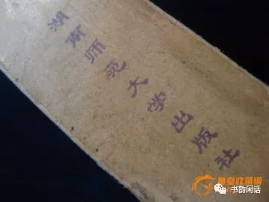 湖南师范大学出版社
书韵闲话